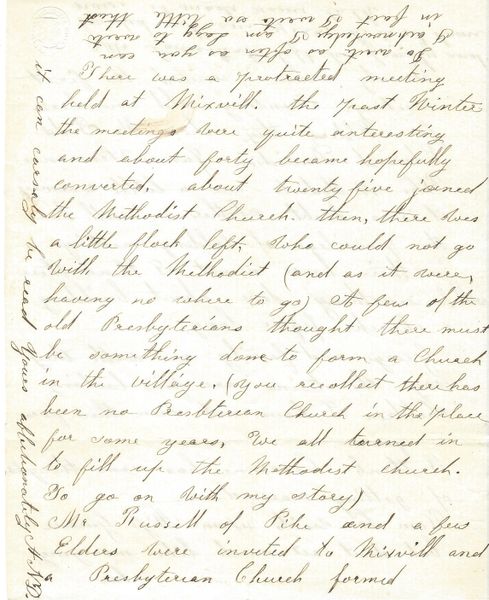 There was a protracted meeting
held at Mixvill. the past Winter
the meetings were quite interesting
and about forty became hopefully
converted, about twenty five joined
the Methodist Church. then, there was
a little flock left, who could not go
with the Methodist (and as it were,
having no where to go) A few of the
old Presbyterians thought there must
be something done to form a Church
in the village, (you recollect there has
been no Presbterian Church in the place
for some years, We all turned in
to fill up the Methodist church.
To go on with my story)
Mr Russell of Pike and a few
Elders were invited to Mixvill and
a Presbyterian Church formed
Do write as often as you can
I acknowledge I am lazy to write
in fact I write so little that
it can carsely be read Yours affectionately A.N.D.